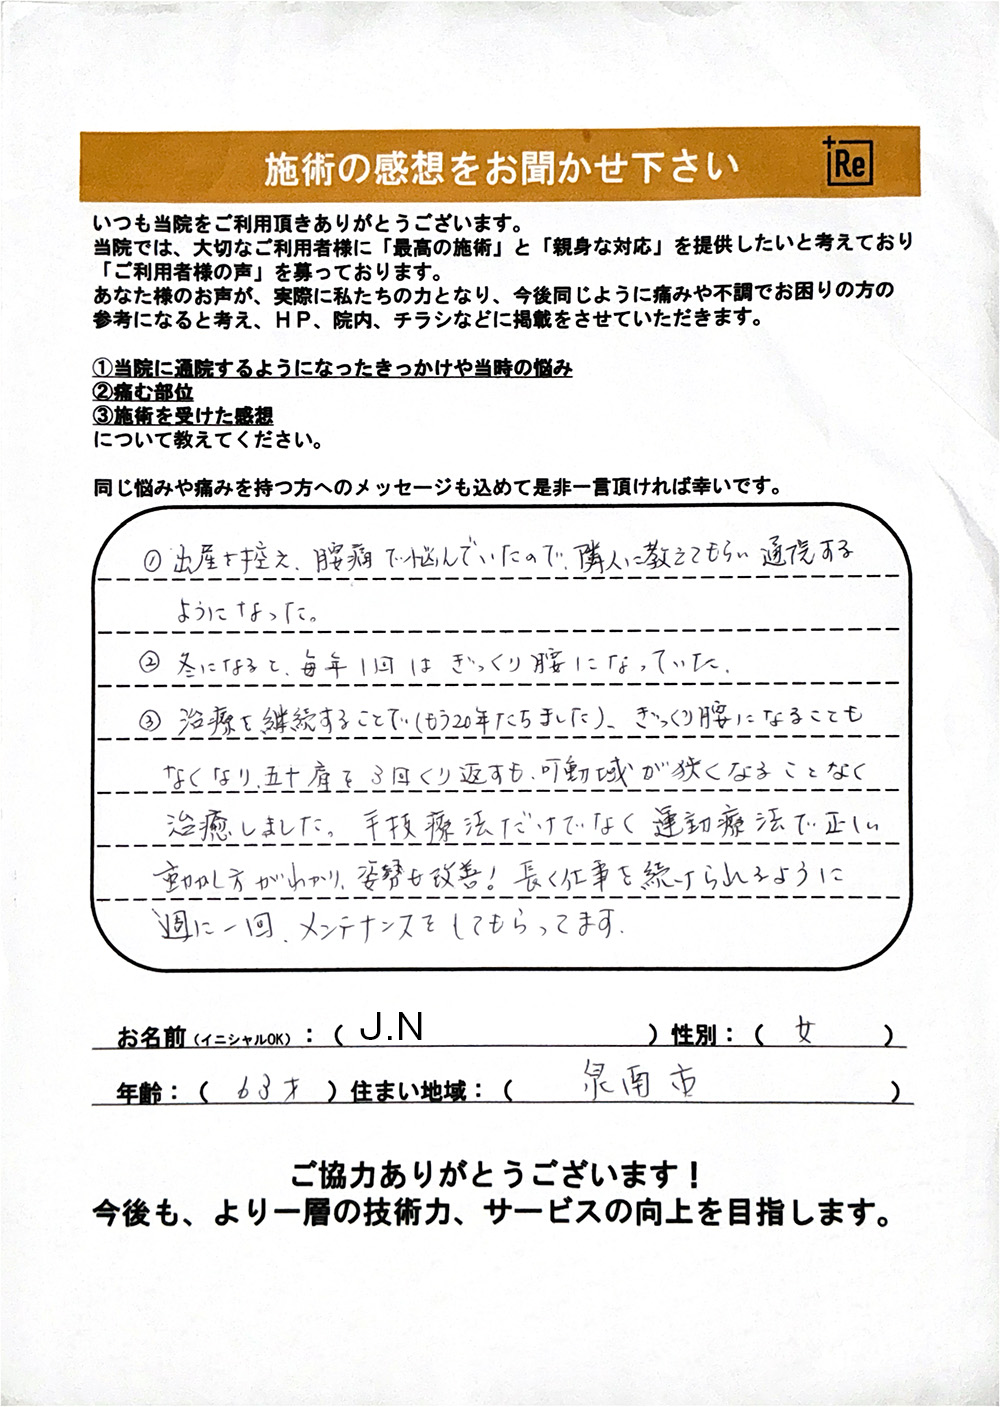 施術の感想をお聞かせ下さい
+Re
いつも当院をご利用頂きありがとうございます。
当院では、大切なご利用者様に「最高の施術」と「親身な対応」を提供したいと考えており
「ご利用者様の声」を募っております。
あなた様のお声が、実際に私たちの力となり、今後同じように痛みや不調でお困りの方の
参考になると考え、HP、院内、チラシなどに掲載をさせていただきます。
①当院に通院するようになったきっかけや当時の悩み
②痛む部位
③施術を受けた感想
について教えてください。
同じ悩みや痛みを持つ方へのメッセージも込めて是非一言頂ければ幸いです。
① 出産を控え、腰痛で悩んでいたので、隣人に教えてもらい通院する
ようになった。
② 冬になると、毎年1回はぎっくり腰になっていた。
③ 治療を継続することで(もう20年たちました)、ぎっくり腰になることも
なくなり、五十肩を3回くり返すも、可動域が狭くなることなく
治癒しました。手技療法だけでなく運動療法で正しい
動かし方がわかり、姿勢も改善! 長く仕事を続けられるように
週に一回、メンテナンスをしてもらってます。
お名前(イニシャルOK):( J.N ) 性別:( 女 )
年齢:( 63才 ) 住まい地域:( 泉南市 )
ご協力ありがとうございます!
今後も、より一層の技術力、サービスの向上を目指します。